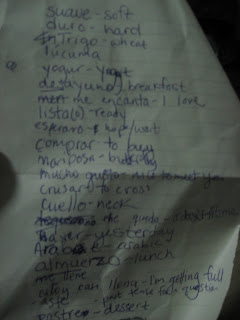 suave - soft
duro - hard
Trigo - wheat
lucuma
yogur - yogurt
desayuno - breakfast
me encanta - I love
listo(a) - ready
espero - hope/wait
comprar - to buy
mariposa - butterfly
mucho gusto - nice to meet you
crusar - to cross
cuello - neck
me
ayer - yesterday
Arabe - arabic
almuerzo - lunch
me llene
estoy llena - I'm getting full
-aste - past tense for a question
postre - dessert